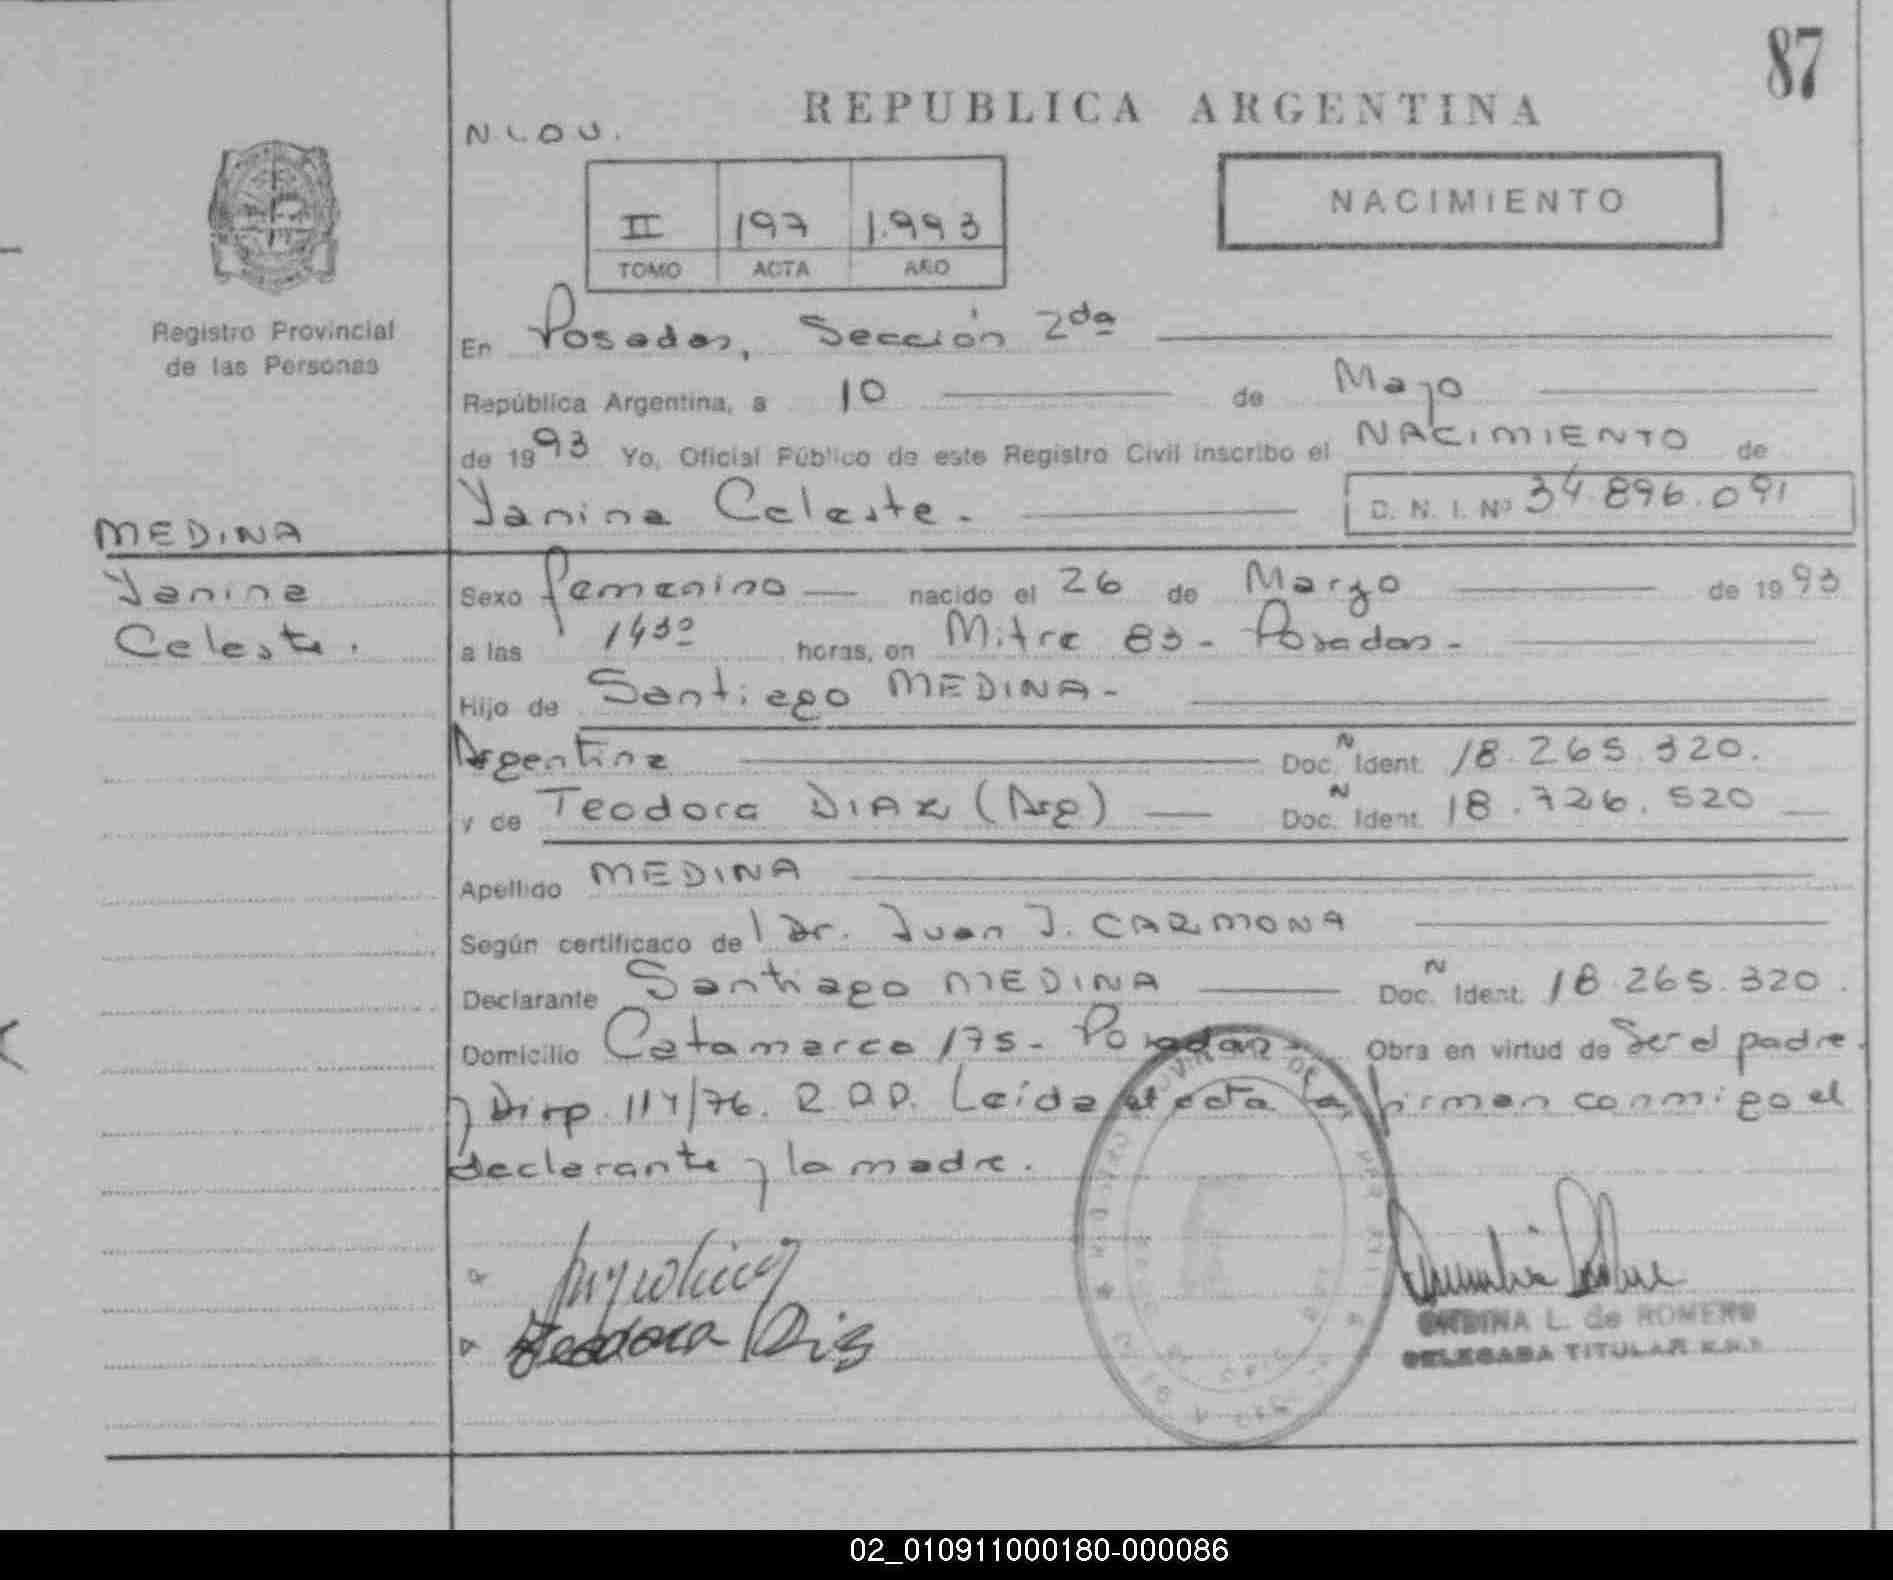 87
REPUBLICA ARGENTINA
NACIMIENTO
II 197 1.993
TOMO ACTA AÑO
Registro Provincial
de las Personas
En Posadas, Sección 2da
República Argentina, a 10 de Mayo
de 1993 Yo, Oficial Público de este Registro Civil inscribo el NACIMIENTO de
Yanina Celeste. D. N. I. Nº 34.896.091
MEDINA
Yanina
Celeste.
Sexo femenino nacido el 26 de Marzo de 1993
a las 1430 horas, en Mitre 83 - Posadas -
Hijo de Santiago MEDINA -
Argentina Doc. N Ident. 18.265.320.
y de Teodora DIAZ (Arg) Doc. N Ident. 18.726.520
Apellido MEDINA
Según certificado de Dr. Juan J. CARMONA
Declarante Santiago MEDINA Doc. N Ident. 18.265.320.
Domicilio Catamarca 175 - Posadas - Obra en virtud de Ser el padre.
y Disp. 114/76. R.P.P. Leída el acta la firman conmigo el
declarante y la madre.
Teodora Diaz
L. de ROMERO
DELEGADA TITULAR R.P.P.
02_010911000180-000086